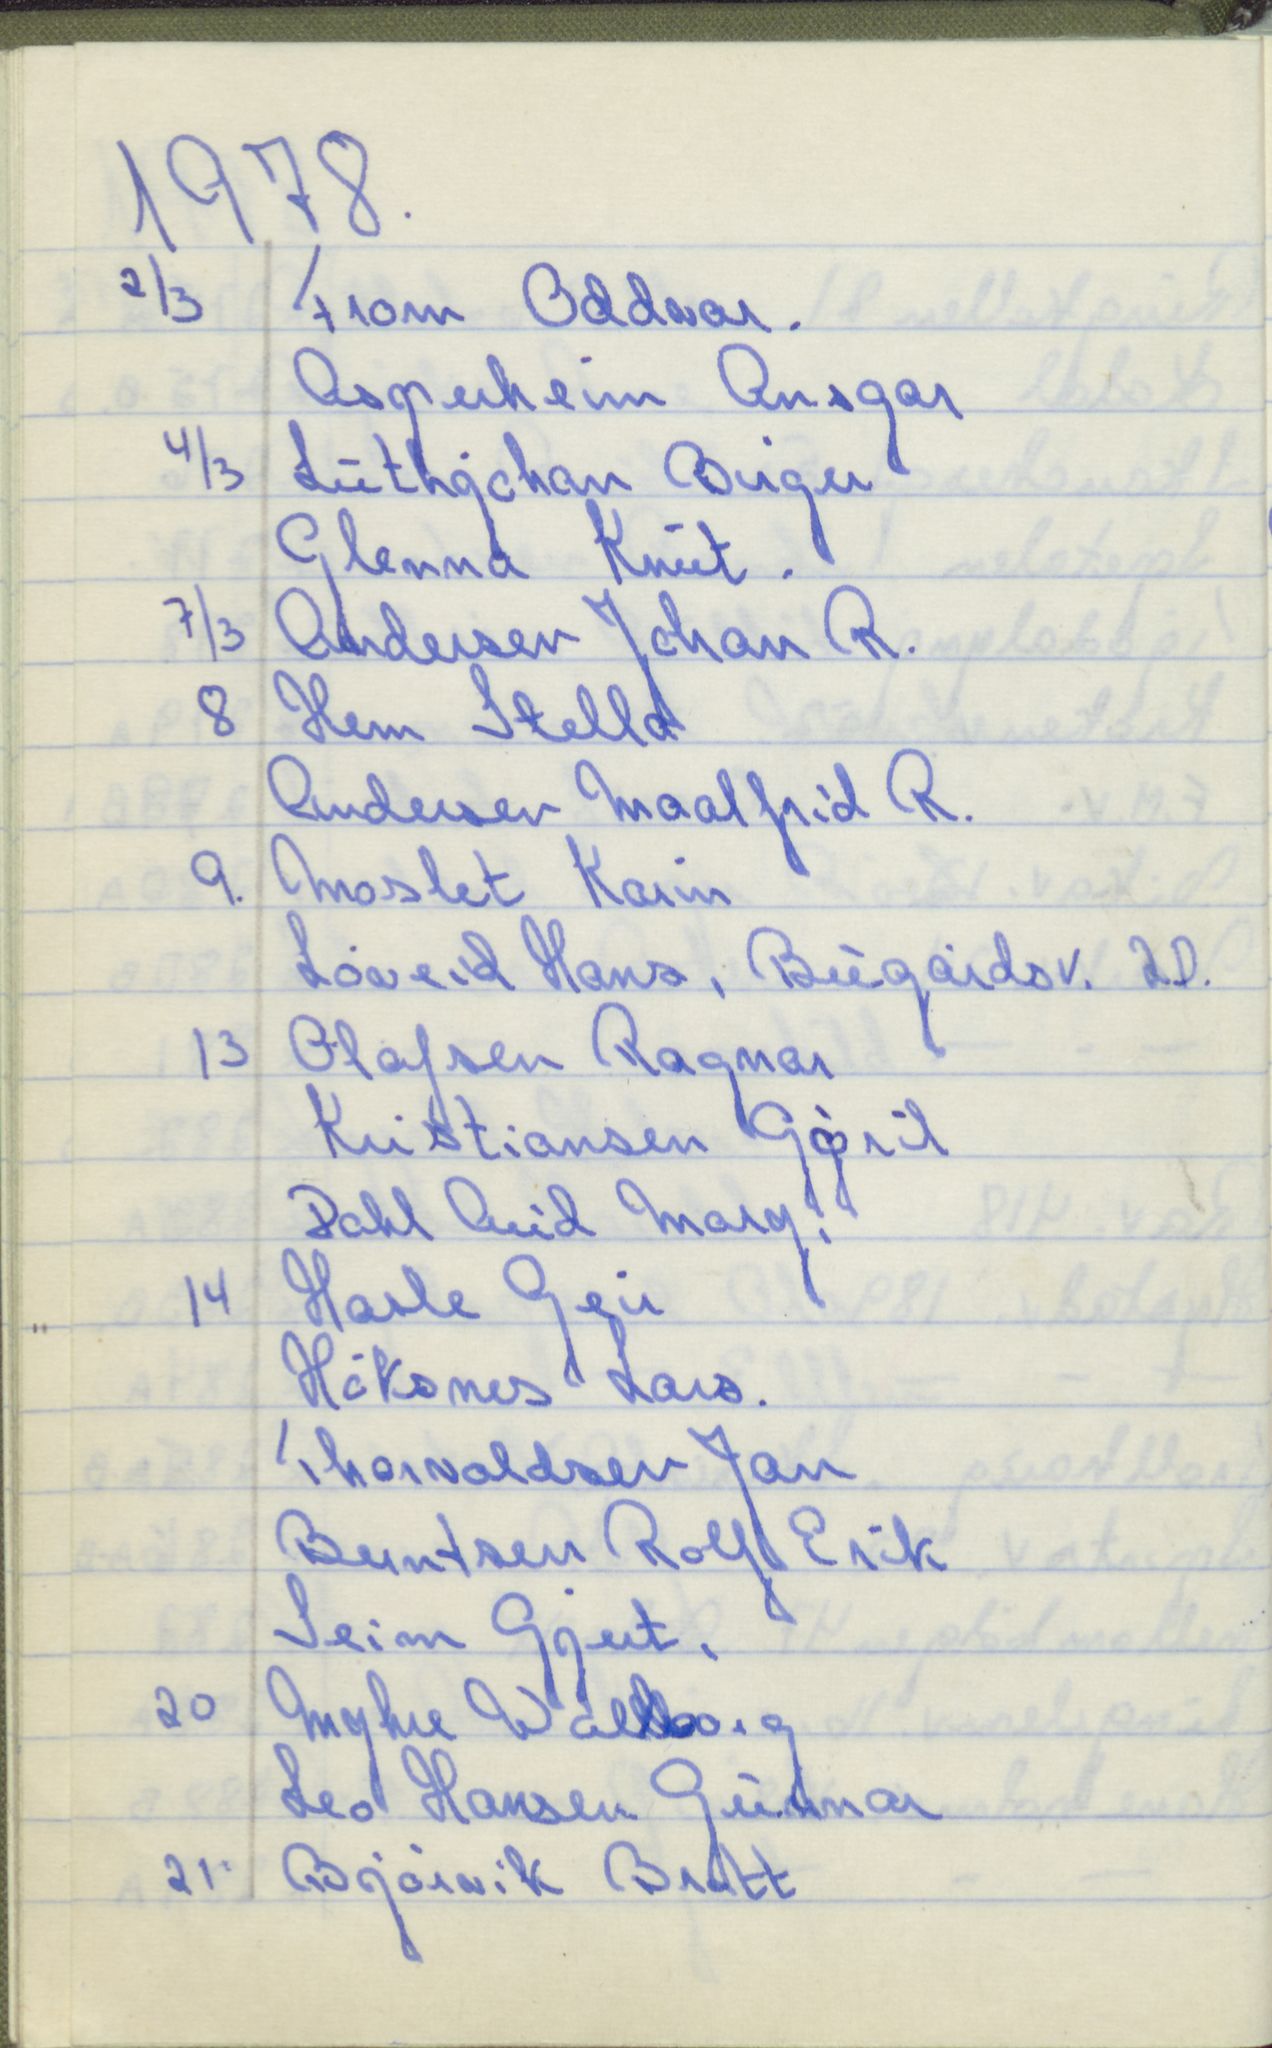 1978.
2/3 From Oddvar.
Asperheim Ansgar
4/3 Lüthjohan Birger
Glenna Knüt.
7/3 Andersen Johan R.
8 Hem Stella
Andersen Maalfrid R.
9. Moslet Karin
Løveid Hans, Bügårdsv. 2D.
13 Olafsen Ragnar
Kristiansen Gøril
Dahl Arid Marg.
14 Hasle Geir
Håksnes Lars.
Thorvaldsen Jan
Berntsen Rolf Erik
Seim Gjert.
20 Myhre Walborg
Leo Hansen Günnar
21. Bjørvik Britt